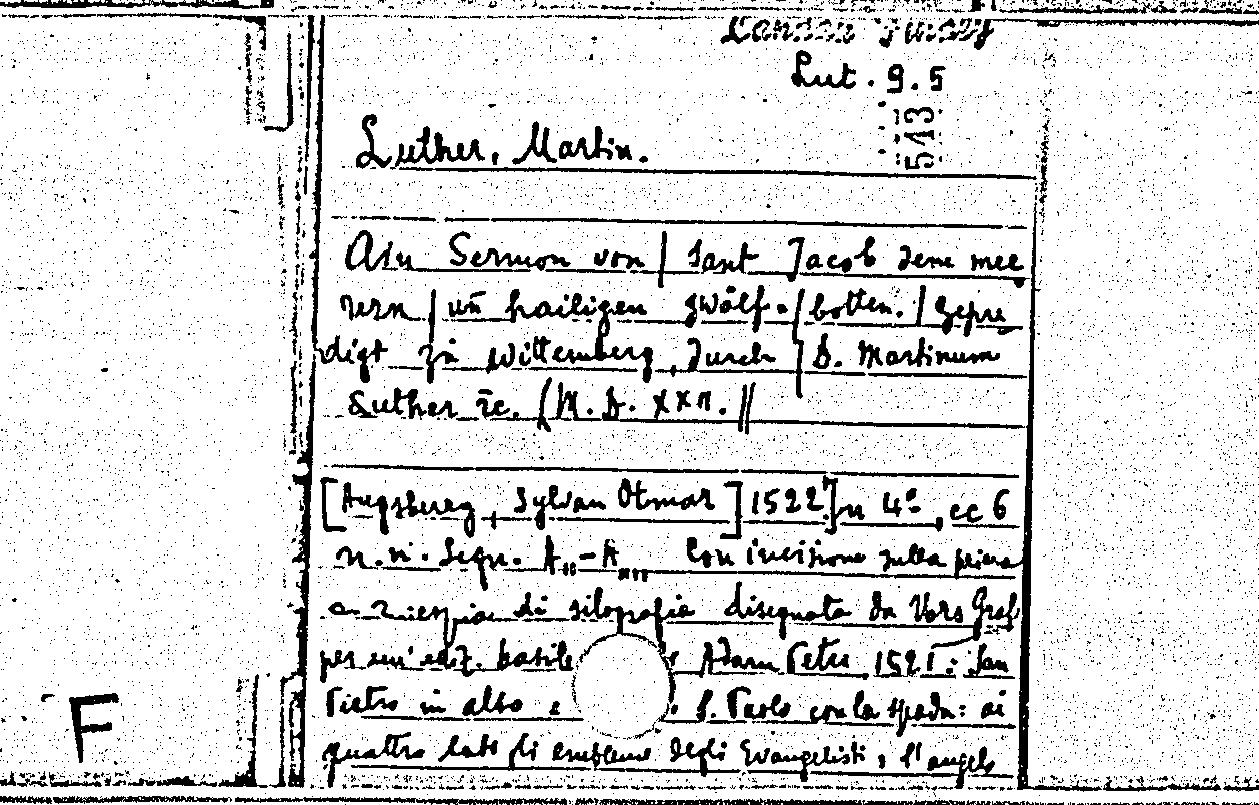 Lut. 9.5
543
Luther, Martin.
Ain Sermon von | Sant Jacob deme mee
rern | uñ hailigen zwölf= | botten. | Gepre
digt zů Wittemberg, durch | D. Martinum
Luther ꝛc. | M. D. XXII. ||
[Augsburg, Sylvan Otmar] 1522] in 4°, cc 6
n. n. Segn. A - A Con incisione sulla prima
c. di silografia disegnata da Urs Graf
per un' ediz. Adam Petri 1521: San
Pietro in alto e S. Paolo con la spada: ai
quattro lati gli emblemi degli Evangelisti, l'angelo
F